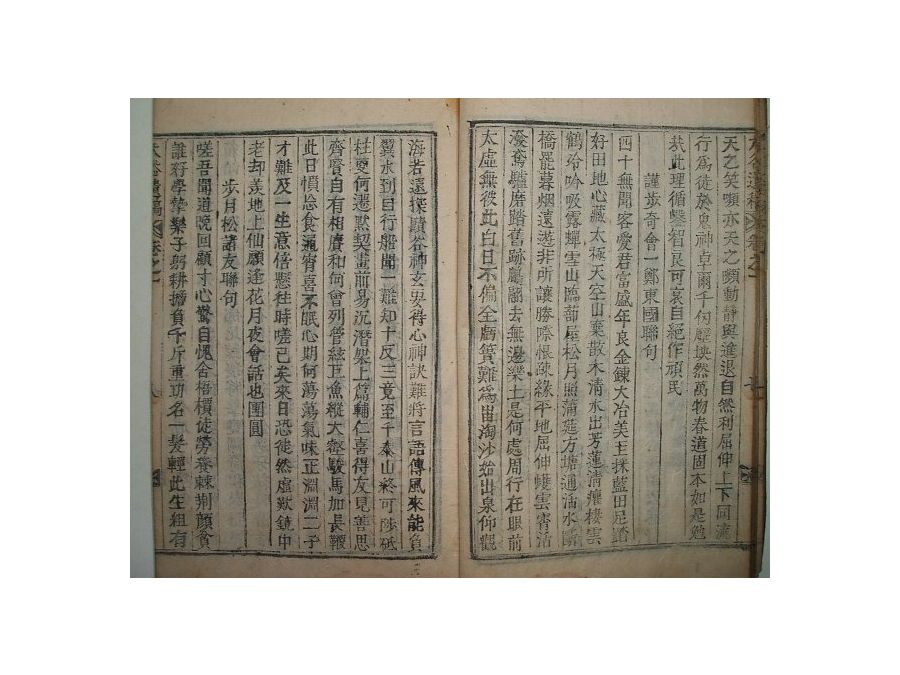 天之笑嚬亦天之嚬動靜與進退自然利屈伸上下同流
行爲徒於鬼神卓爾千勾壓塊然萬物春道固本如是勉
哉此理循鑿智良可哀自絕作頑民
謹步奇會一鄭東國聯句
四十無聞客愛君富盛年良金鍊大冶美玉採藍田足踏
好田地心藏太極天空山棄散木淸水出芳蓮淸癯棲雲
鶴吟吸露蟬雲山臨蔀屋松月照蒲筵方塘通活水
橋罷暮烟遠遊非所讓勝際恨疎緣平地屈伸雲霄沾
潑鴦驢磨踏舊跡鵬翩去無邊樂土是何處周行在眼前
太虛無彼此白日不偏全虧簣難爲留淘沙始出泉仰觀
海若遠探賾谷神玄安得心神訣難將言語傳風來能負
翼水到自行船聞一難知十反三竟至千泰山終可陟砥
柱更何遷默契畫前易沉潛架上篇輔仁喜得友見善思
齊賢自有相賡和何曾列管絃巨魚縱大壑駿馬加長鞭
此日憤忘食通宵喜不眠心期何蕩蕩氣味正淵淵二子
才難及一生意倍懸往時嗟已矣來日恐徒然虛歎鏡中
老却羨地上仙願逢花月夜會話也團圓
步月松諸友聯句
嗟吾聞道晩回顧寸心驚自愧舍梧檟徒勞養棘荊顏貧
誰好學摯樂子躬耕擔負千斤重功名一髮輕此生俎有
卷之一